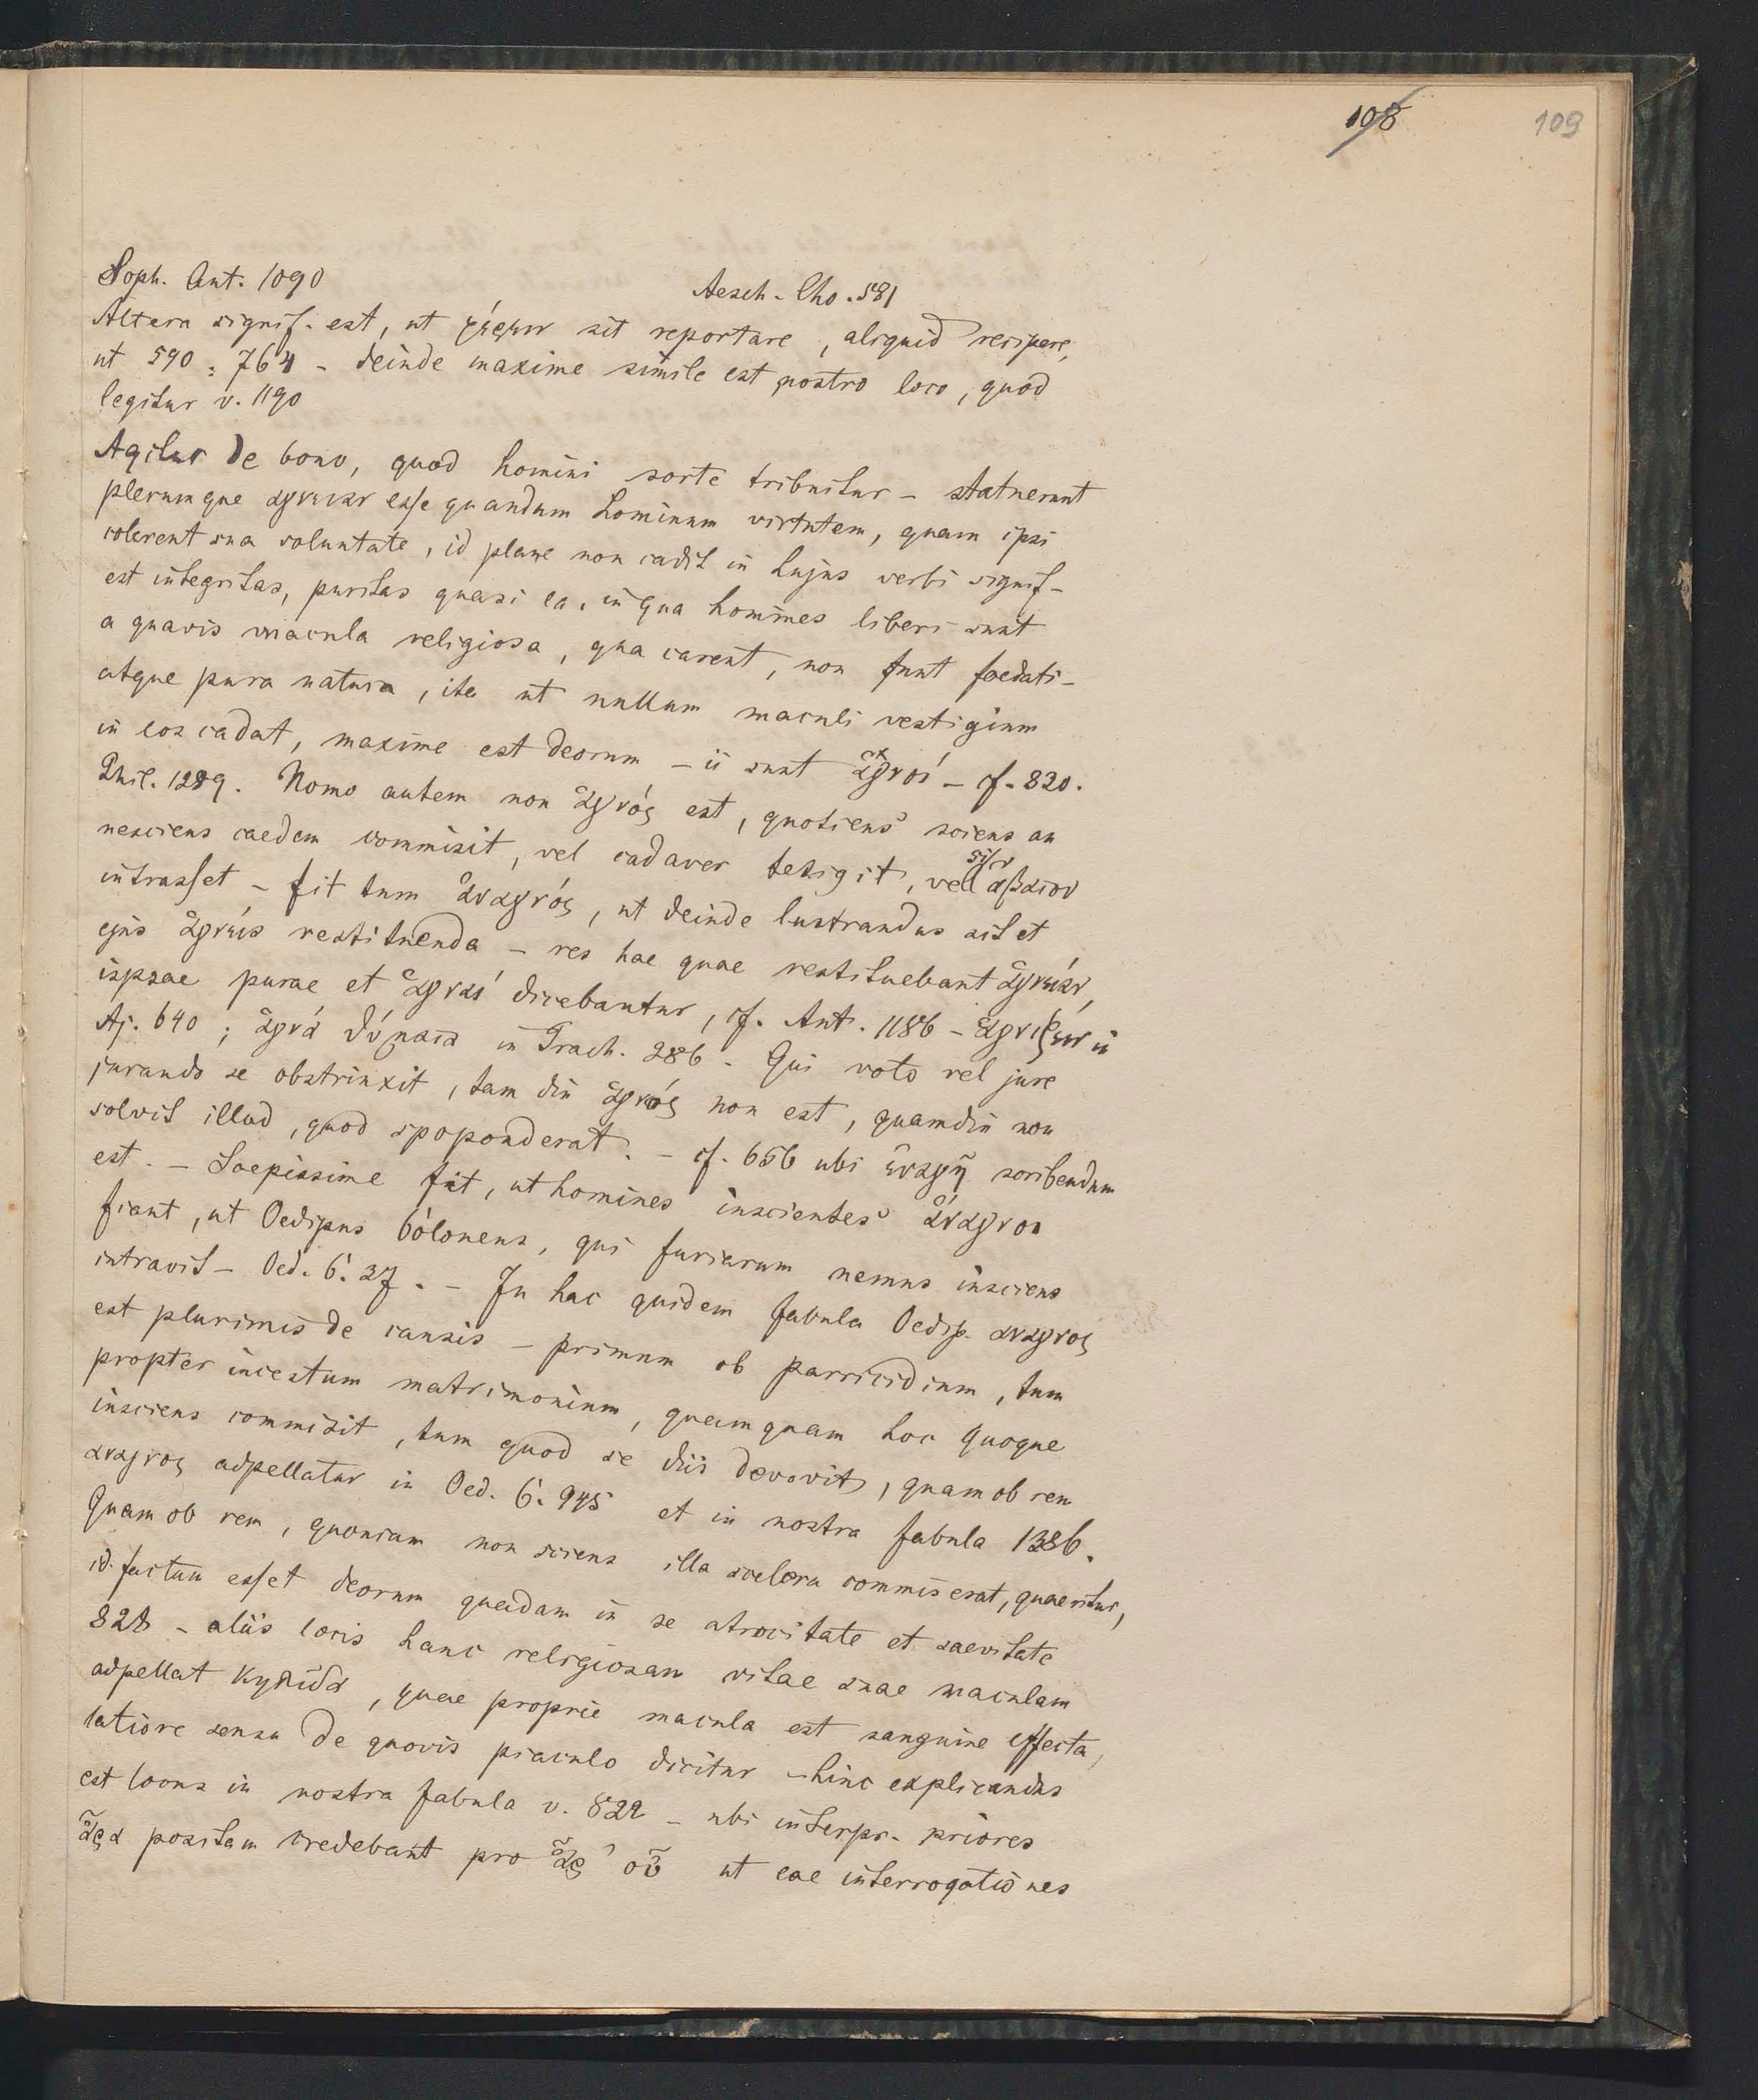 108 109
Soph. Ant. 1090 Aesch. Cho. 581
Altera signif. est, ut φέρειν sit reportare, aliquid recipere,
ut 590 : 764 - deinde maxime simile est nostro loco, quod
legitur v. 1190
Agitur de bono, quod homini sorte tribuitur - statuerunt
plerumque ἁγνείαν esse quandam hominum virtutem, quam ipsi
colerent sua voluntate, id plane non cadit in hujus verbi signif-
est integritas, puritas quasi ea, in qua homines liberi sunt
a quavis macula religiosa, qua carent, non sunt foedati-
atque pura natura, ita ut nullum maculi vestigium
in eos cadat, maxime est deorum - ii sunt ἁγνοί - cf. 830.
Phil. 1289. Homo autem non ἁγνός est, quotiens sciens an
nesciens caedem commisit, vel cadaver tetigit, vel ἄβατον
intrasset - fit tum ἀναγνός, ut deinde lustrandus sit et
ejus ἁγνεία restituenda - res hae quae restituebant ἁγνείαν,
ispsae purae et ἁγναί dicebantur, cf. Ant. 1186 - ἁγνίζειν in
Aj. 640 ; ἁγνά θύματα in Trach. 286. Qui voto vel jure
jurando se obstrinxit, tam diu ἁγνός non est, quamdiu non
solvit illud, quod spoponderat. - cf. 656 ubi ἐναγῆ scribendum
est. - Saepissime fit, ut homines inscientes ἄναγνοι
fiant, ut Oedipus Coloneus, qui furiarum nemus insciens
intravit - Oed. C. 37. - In hac quidem fabula Oedip. αναγνος
est plurimis de causis - primum ob parricidium, tum
propter incestum matrimonium, quamquam hoc quoque
insciens commisit, tum quod se diis devovit, quam ob rem
αναγνος adpellatur in Oed. C. 945 et in nostra fabula 1386.
Quam ob rem, quoniam non sciens illa scelera commiserat, quaeritur,
id factum esset deorum quadam in se atrocitate et saevitate
828 - aliis locis hanc religiosam vitae suae maculam
adpellat κηλῖδα, quae proprie macula est sanguine effecta,
latiore sensu de quovis piaculo dicitur - hinc explicandus
est locus in nostra fabula v. 822 - ubi interpr. priores
ἆρα positam credebant pro ἆρ' οὐ ut eae interrogationes